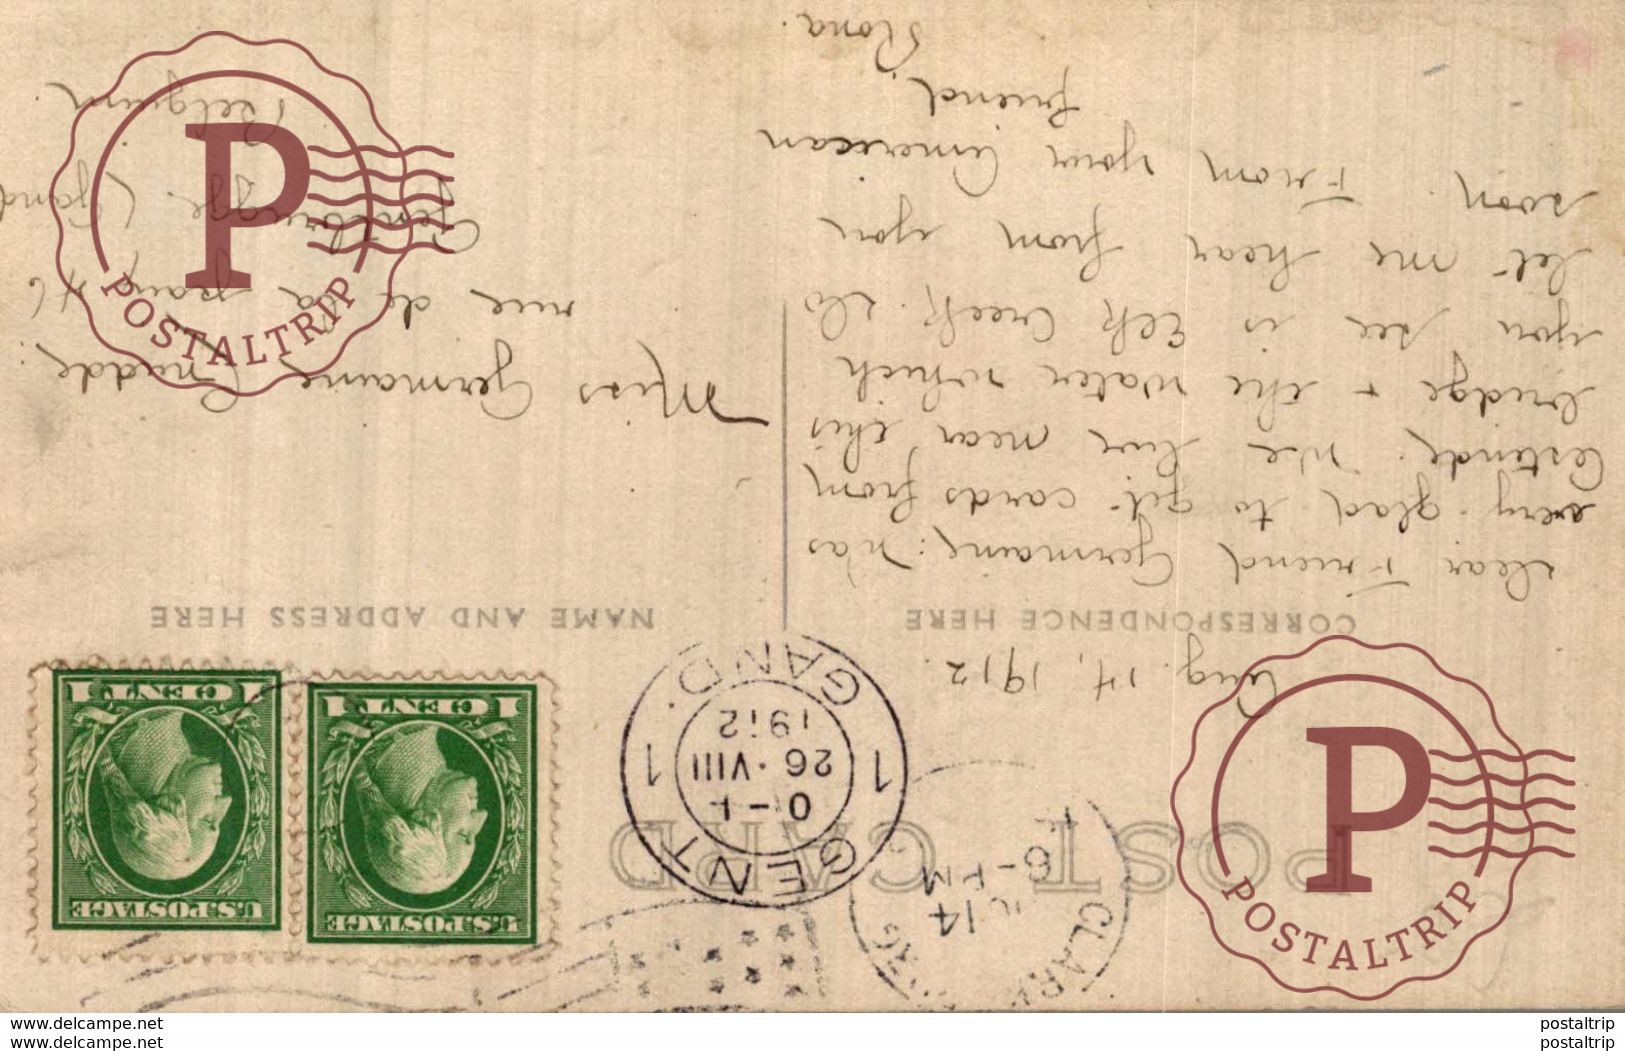 POST CARD
Aug. 14, 1912.
CORRESPONDENCE HERE
Dear Friend Germaine: Was
very glad to get cards from
Ostende. We live near this
bridge + the water which
you see is Elk Creek. Do
let me hear from you
soon. From your American
friend,
Rona.
NAME AND ADDRESS HERE
Miss Germaine
rue de la 46
Gentbrugge. (Gand
Belgium
U.S. POSTAGE
1 CENT 1
U.S. POSTAGE
1 CENT 1
1 GENT 1
0-1
26·VIII
1912
GAND
CLARK
14
6-PM
P
POSTALTRIP
P
POSTALTRIP
www.delcampe.net
www.delcampe.net
postaltrip
postaltrip